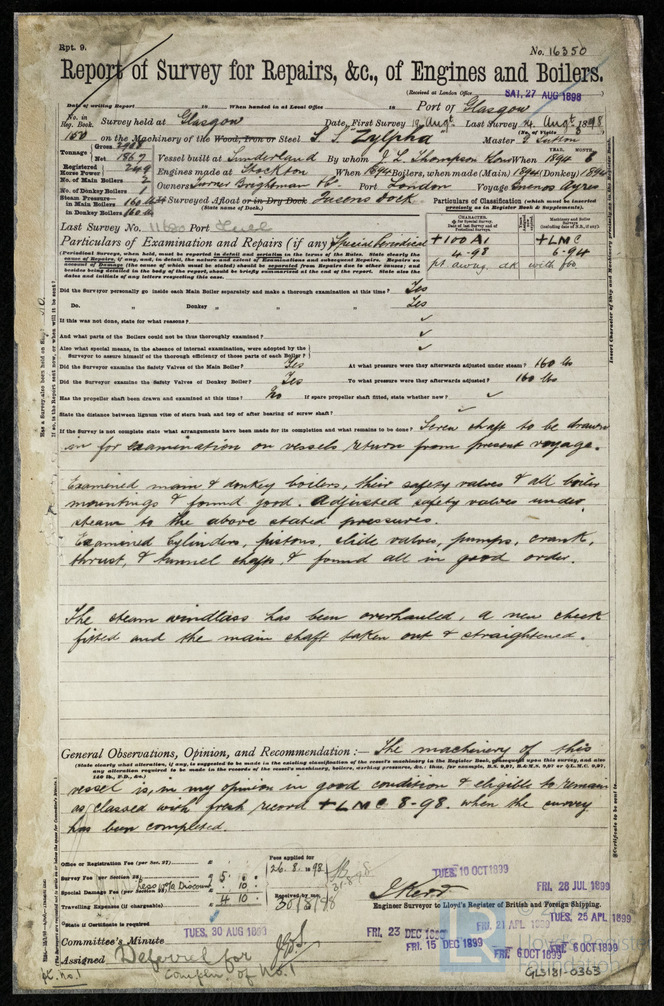 Rpt. 9.
No. 16350
Report of Survey for Repairs, &c., of Engines and Boilers.
(Received at London Office SAT, 27 AUG 1898
Date of writing Report to When handed in at Local Office to Port of Glasgow
No. in Reg. Book. Survey held at Glasgow Date, First Survey Augt Last Survey Augt 1898
(No. of Visits 3)
160 on the Machinery of the Wood, Iron or Steel S.S. Zylpha Master
Tonnage Gross 2908
Net 1867 Vessel built at Sunderland By whom J L Thompson & Sons When 1894 6
YEAR. MONTH.
Registered Horse Power 249 Engines made at Stockton When 1894 Boilers, when made (Main) 1894 (Donkey) 1894
No. of Main Boilers 2 Owners Turner Brightman & Co. Port London Voyage Buenos Ayres
No. of Donkey Boilers 1
Steam Pressure in Main Boilers 160 lbs If Surveyed Afloat or in Dry Dock Queens Dock
(State name of Dock.)
in Donkey Boilers 160 lbs
Particulars of Classification (which must be inserted precisely as in Register Book & Supplements).
Last Survey No. Port Hull
Particulars of Examination and Repairs (if any) Special Periodical
+100 A1
4-98
+LMC
6-94
Did the Surveyor personally go inside each Main Boiler separately and make a thorough examination at this time? Yes
Do. " Donkey " " " Yes
If this was not done, state for what reasons?
And what parts of the Boilers could not be thus thoroughly examined?
Also what special means, in the absence of internal examination, were adopted by the
Surveyor to assure himself of the thorough efficiency of those parts of each Boiler?
Did the Surveyor examine the Safety Valves of the Main Boiler? Yes At what pressure were they afterwards adjusted under steam? 160 lbs
Did the Surveyor examine the Safety Valves of Donkey Boiler? Yes To what pressure were they afterwards adjusted? 160 lbs
Has the propeller shaft been drawn and examined at this time? No If spare propeller shaft fitted, state whether new?
State the distance between lignum vitæ of stern bush and top of after bearing of screw shaft?
If the Survey is not complete state what arrangements have been made for its completion and what remains to be done? Screw shaft to be drawn
in for examination on vessels return from present voyage.
Examined main & donkey boilers, their safety valves & all boiler
mountings & found good. Adjusted safety valves under
steam to the above stated pressures.
Examined Cylinders, pistons, slide valves, pumps, crank,
thrust, & tunnel shafts, & found all in good order.
The steam windlass has been overhauled, a new cheek
fitted and the main shaft taken out & straightened.
General Observations, Opinion, and Recommendation:— The machinery of this
vessel is, in my opinion in good condition & eligible to remain
as classed with fresh record +LMC 8-98. when the survey
has been completed.
Office or Registration Fee (per Sec. 27)
Fees applied for
26.8.1898
Survey Fee (per Section 28) £ 5
Less 10% Discount 10
Special Damage Fee (per Section 28)
4 10
Travelling Expenses (if chargeable)
Received by me,
30/8/98
31.8.98
Engineer Surveyor to Lloyd's Register of British and Foreign Shipping.
State if Certificate is required
Committee's Minute TUES, 30 AUG 1898
Assigned Deferred for
Complen. of No. 1
TUES. 10 OCT 1899
FRI. 28 JUL 1899
FRI. 21 APL 1899
TUES. 25 APL 1899
FRI. 23 DEC
FRI. 15 DEC 1899
FRI. 6 OCT 1899
FRI. 6 OCT 1899
LR
Lloyd's Register
Foundation
GLS181-0363